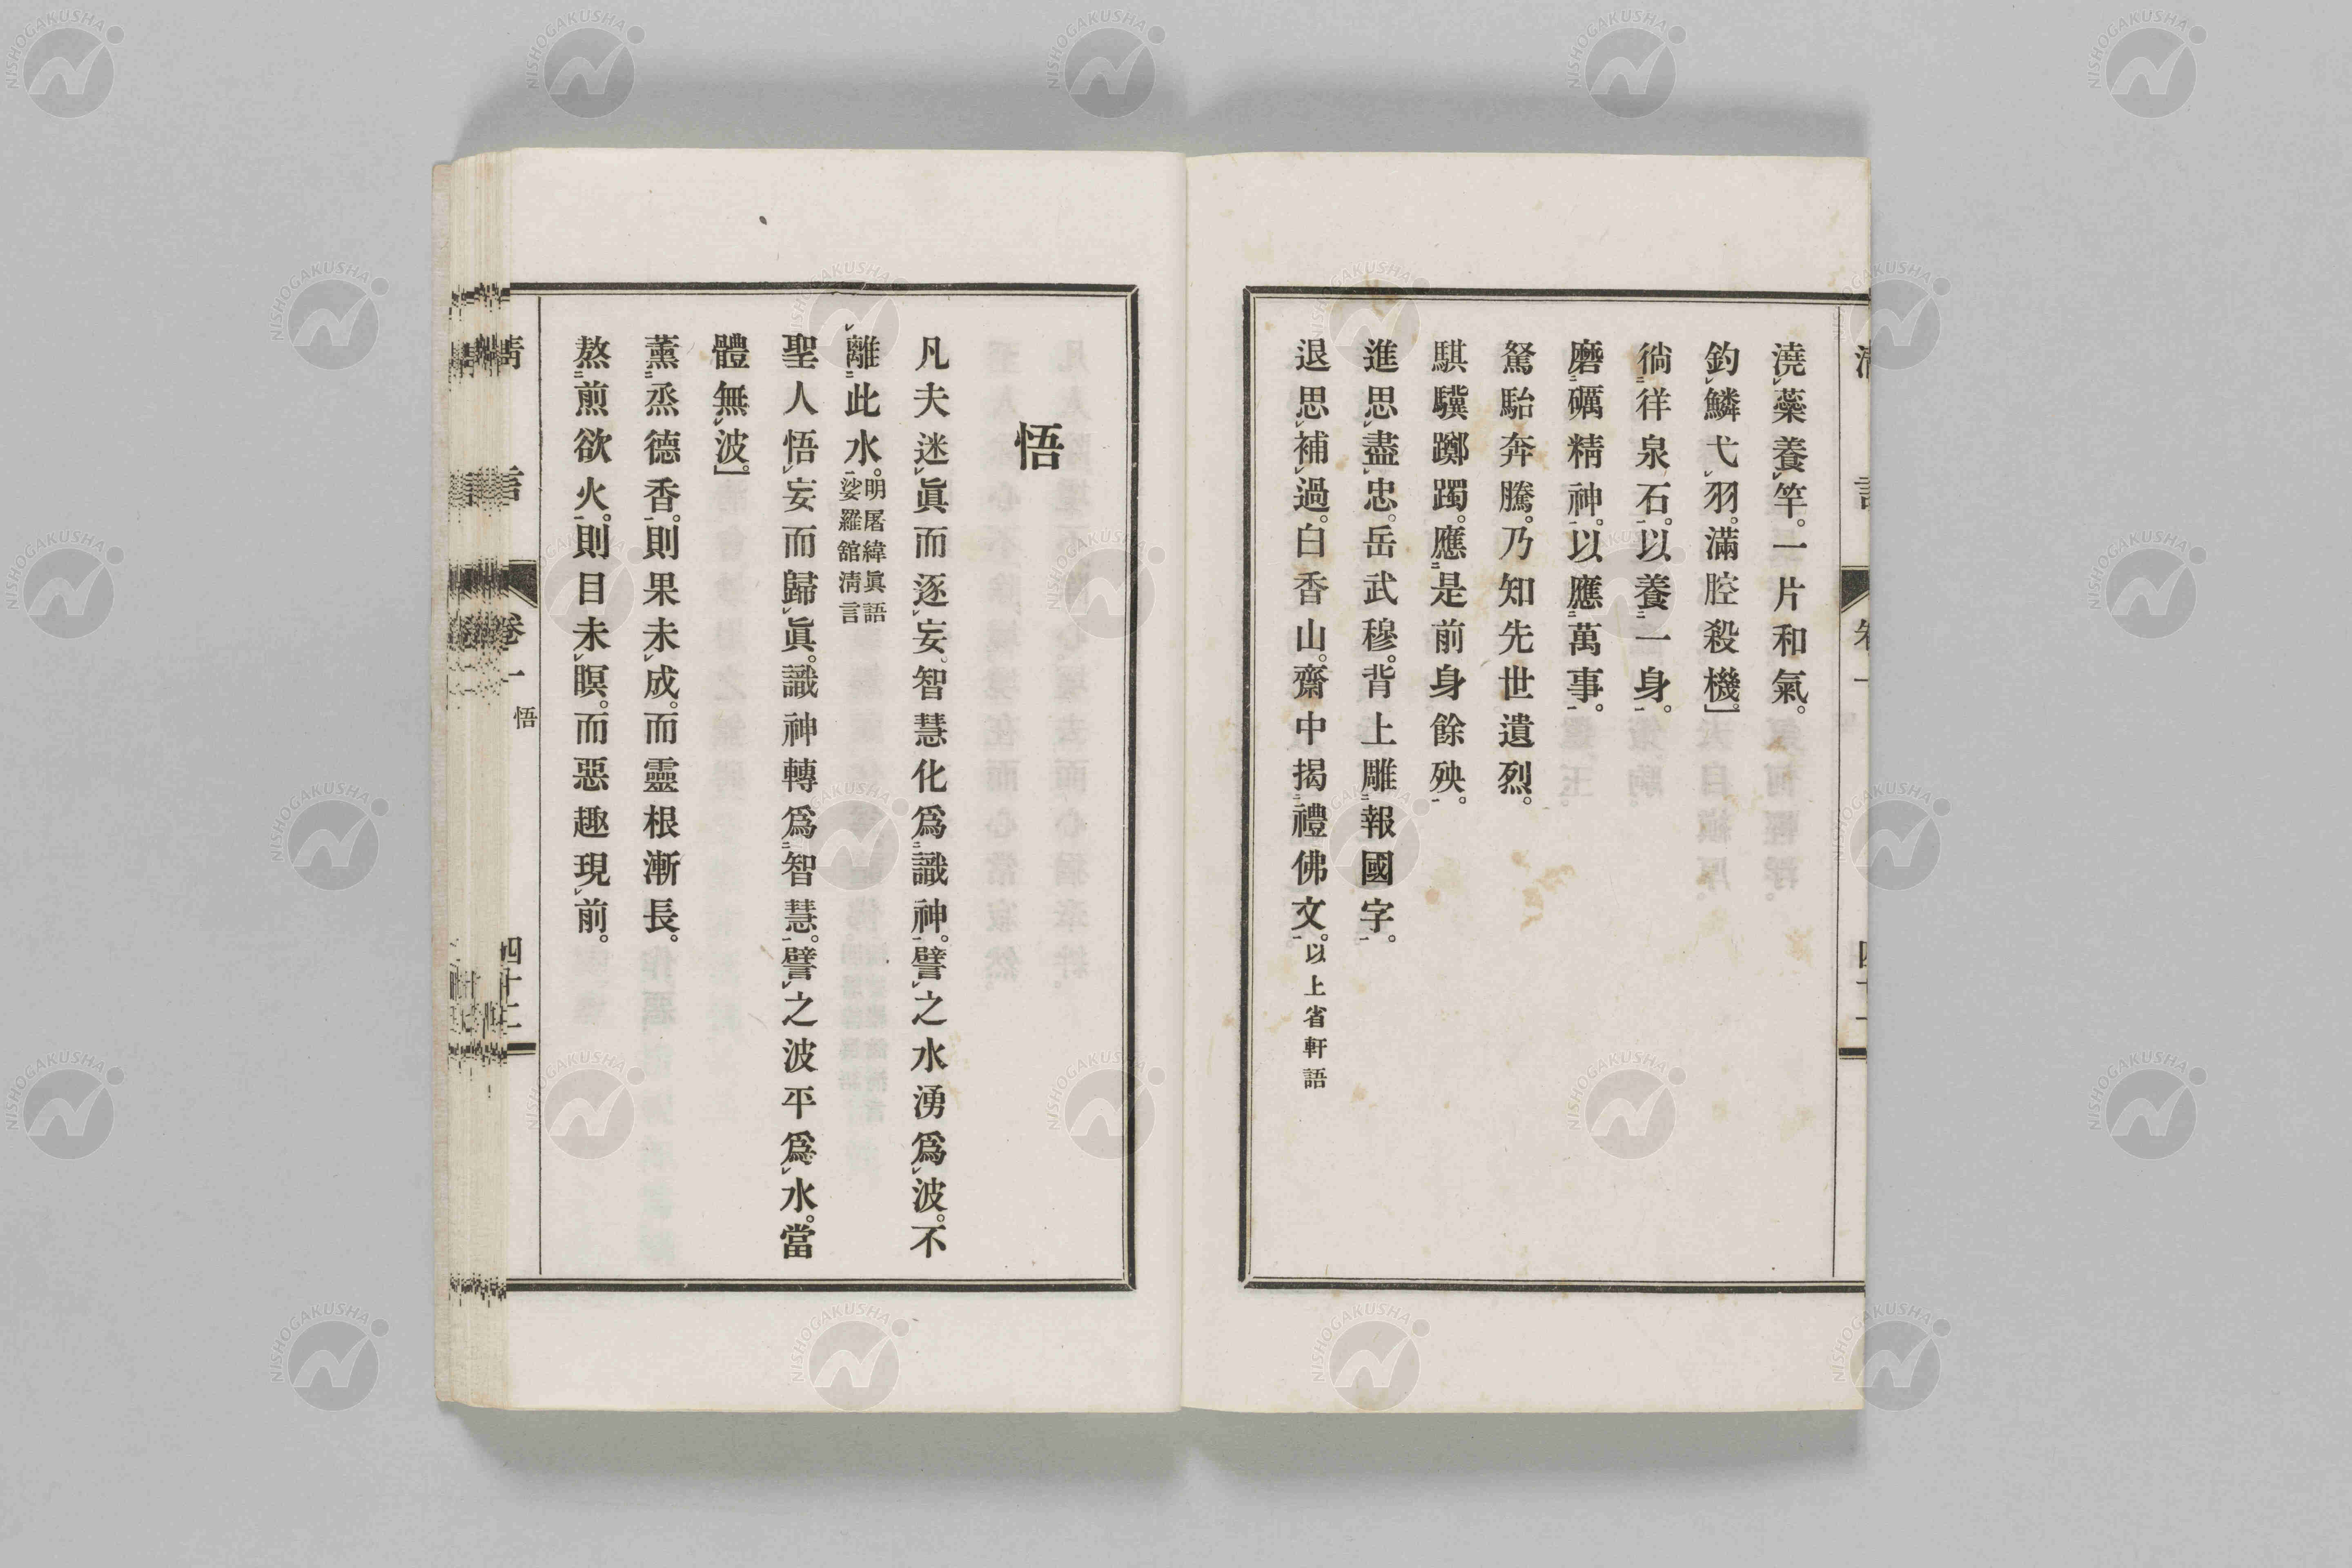 澆藥養竿。一片和氣。
釣鱗弋羽。滿腔殺機。」
徜徉泉石。以養一身。
磨礪精神。以應萬事。
駑駘奔騰。乃知先世遺烈。
騏驥躑躅。應是前身餘殃。
進思盡忠。岳武穆。背上雕報國字。
退思補過。白香山。齋中揭禮佛文。以上省軒語
悟
凡夫迷眞而逐妄。智慧化爲識神。譬之水湧爲波。不
離此水。明屠緯眞語娑羅舘淸言
聖人悟妄而歸眞。識神轉爲智慧。譬之波平爲水。當
體無波。」
薰烝德香。則果未成。而靈根漸長。
熬煎欲火。則目未瞑。而惡趣現前。
卷一 悟
四十二
NISHOGAKUSHA